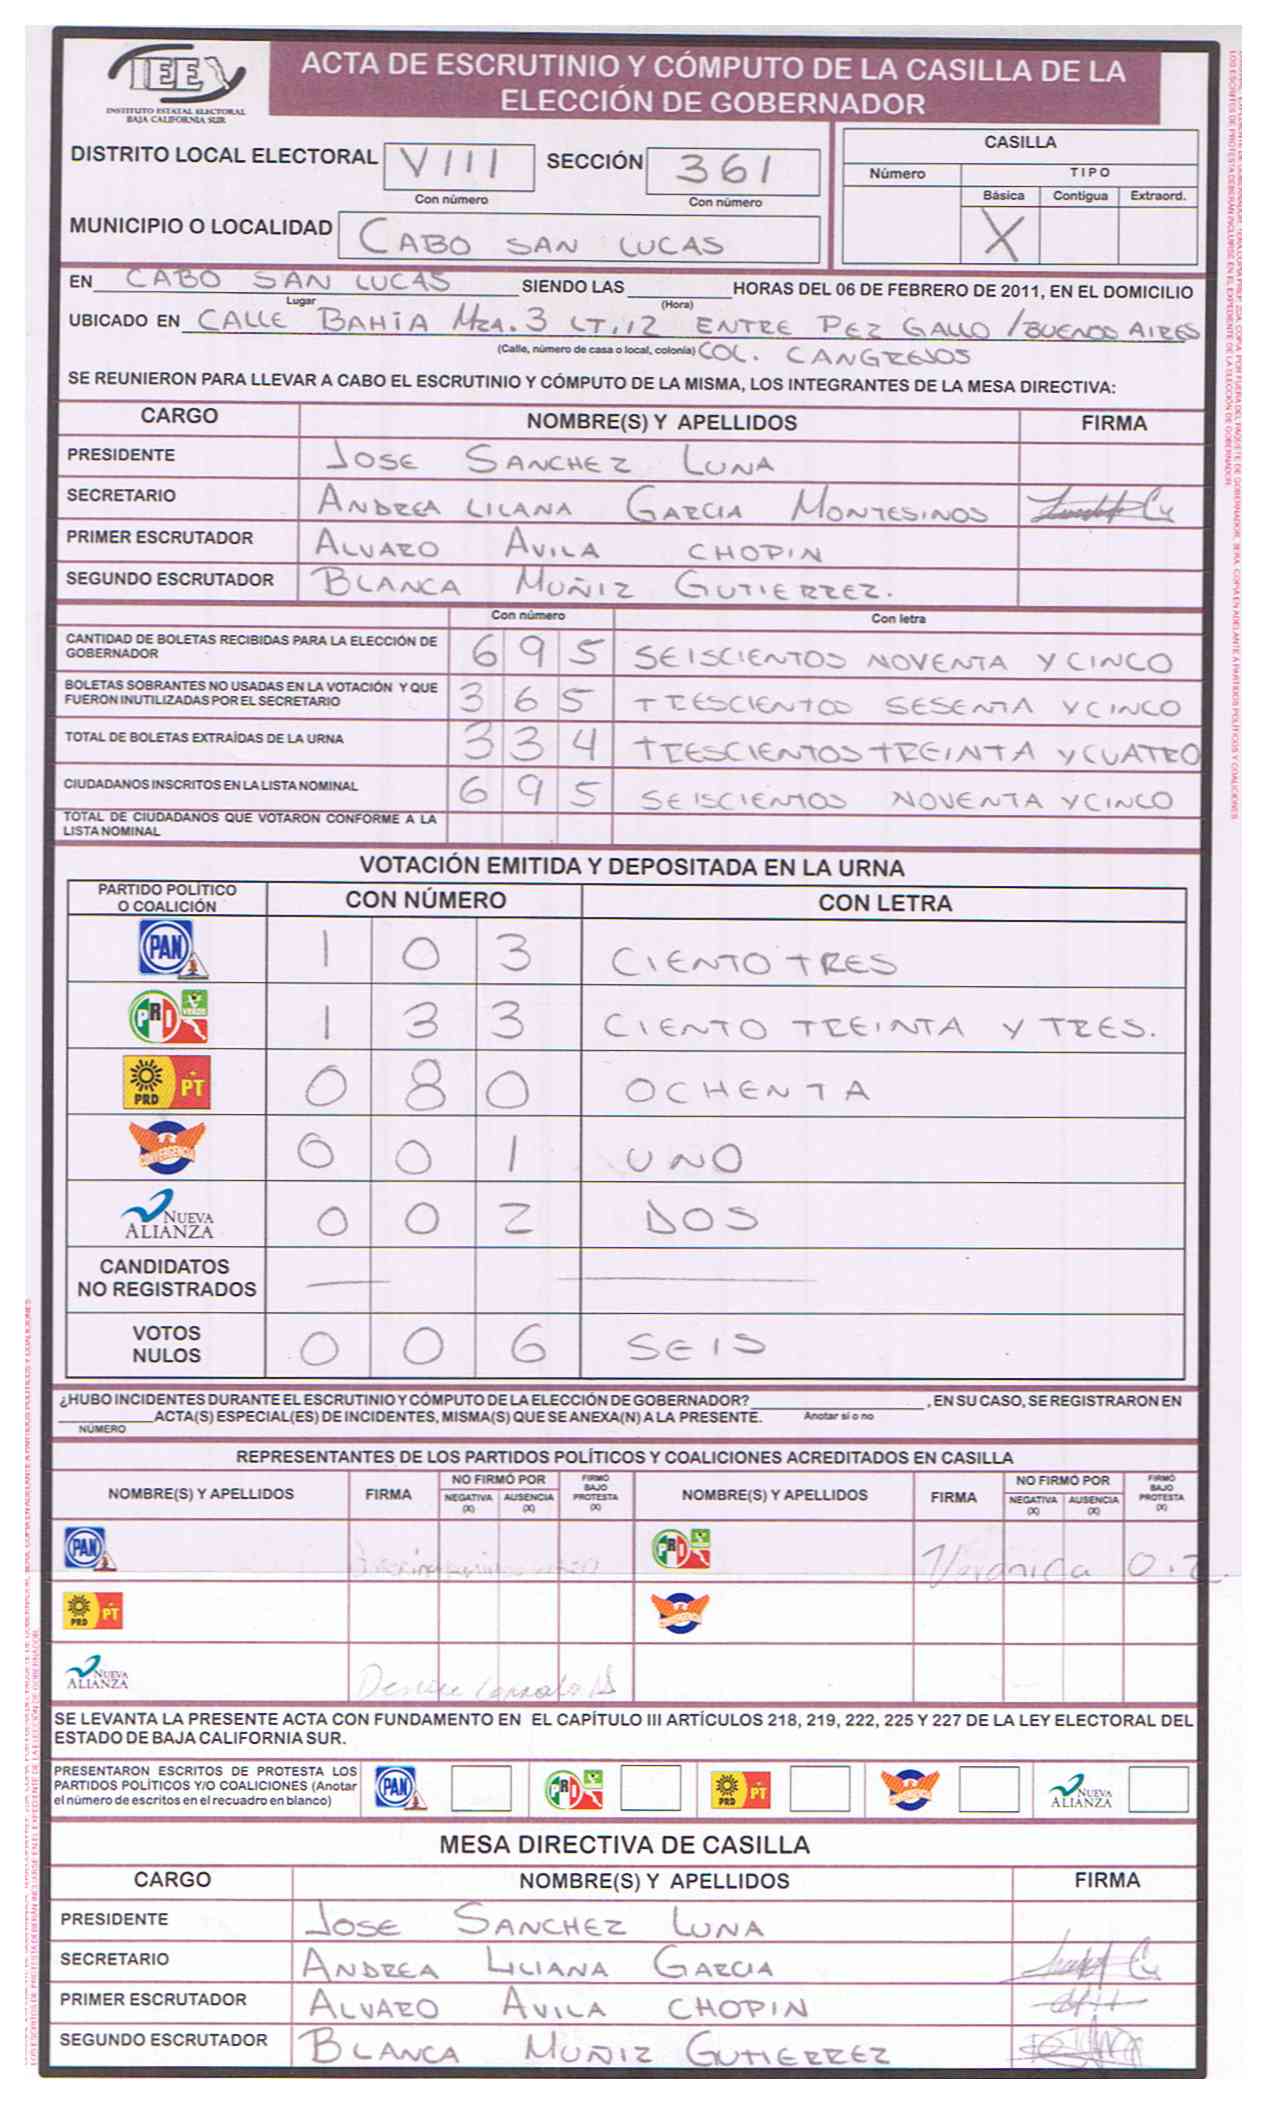 IEE
INSTITUTO ESTATAL ELECTORAL
BAJA CALIFORNIA SUR
ACTA DE ESCRUTINIO Y CÓMPUTO DE LA CASILLA DE LA
ELECCIÓN DE GOBERNADOR
DISTRITO LOCAL ELECTORAL VIII SECCIÓN 361
Con número Con número
CASILLA
Número TIPO
Básica Contigua Extraord.
X
MUNICIPIO O LOCALIDAD CABO SAN LUCAS
EN CABO SAN LUCAS SIENDO LAS HORAS DEL 06 DE FEBRERO DE 2011, EN EL DOMICILIO
Lugar (Hora)
UBICADO EN CALLE BAHÍA Mza. 3 LT. 12 ENTRE PEZ GALLO / BUENOS AIRES
(Calle, número de casa o local, colonia) COL. CANGREJOS
SE REUNIERON PARA LLEVAR A CABO EL ESCRUTINIO Y CÓMPUTO DE LA MISMA, LOS INTEGRANTES DE LA MESA DIRECTIVA:
CARGO NOMBRE(S) Y APELLIDOS FIRMA
PRESIDENTE JOSE SANCHEZ LUNA
SECRETARIO ANDREA LILANA GARCIA MONTESINOS
PRIMER ESCRUTADOR ALVARO AVILA CHOPIN
SEGUNDO ESCRUTADOR BLANCA MUÑIZ GUTIERREZ.
Con número Con letra
CANTIDAD DE BOLETAS RECIBIDAS PARA LA ELECCIÓN DE
GOBERNADOR 695 SEISCIENTOS NOVENTA Y CINCO
BOLETAS SOBRANTES NO USADAS EN LA VOTACIÓN Y QUE
FUERON INUTILIZADAS POR EL SECRETARIO 365 TRESCIENTOS SESENTA Y CINCO
TOTAL DE BOLETAS EXTRAÍDAS DE LA URNA 334 TRESCIENTOS TREINTA Y CUATRO
CIUDADANOS INSCRITOS EN LA LISTA NOMINAL 695 SEISCIENTOS NOVENTA Y CINCO
TOTAL DE CIUDADANOS QUE VOTARON CONFORME A LA
LISTA NOMINAL
VOTACIÓN EMITIDA Y DEPOSITADA EN LA URNA
PARTIDO POLÍTICO
O COALICIÓN CON NÚMERO CON LETRA
PAN 1 0 3 CIENTO TRES
PRI VERDE 1 3 3 CIENTO TREINTA Y TRES.
PRD PT 0 8 0 OCHENTA
CONVERGENCIA 0 0 1 UNO
NUEVA ALIANZA 0 0 2 DOS
CANDIDATOS
NO REGISTRADOS
VOTOS
NULOS 0 0 6 SEIS
¿HUBO INCIDENTES DURANTE EL ESCRUTINIO Y CÓMPUTO DE LA ELECCIÓN DE GOBERNADOR? , EN SU CASO, SE REGISTRARON EN
ACTA(S) ESPECIAL(ES) DE INCIDENTES, MISMA(S) QUE SE ANEXA(N) A LA PRESENTE. Anotar sí o no
NÚMERO
REPRESENTANTES DE LOS PARTIDOS POLÍTICOS Y COALICIONES ACREDITADOS EN CASILLA
NOMBRE(S) Y APELLIDOS FIRMA NO FIRMÓ POR NEGATIVA (X) AUSENCIA (X) FIRMÓ BAJO PROTESTA (X) NOMBRE(S) Y APELLIDOS FIRMA NO FIRMÓ POR NEGATIVA (X) AUSENCIA (X) FIRMÓ BAJO PROTESTA (X)
PAN PRI Veronica O.Z.
PRD PT
NUEVA ALIANZA
SE LEVANTA LA PRESENTE ACTA CON FUNDAMENTO EN EL CAPÍTULO III ARTÍCULOS 218, 219, 222, 225 Y 227 DE LA LEY ELECTORAL DEL
ESTADO DE BAJA CALIFORNIA SUR.
PRESENTARON ESCRITOS DE PROTESTA LOS
PARTIDOS POLÍTICOS Y/O COALICIONES (Anotar
el número de escritos en el recuadro en blanco)
PAN PRI PRD PT NUEVA ALIANZA
MESA DIRECTIVA DE CASILLA
CARGO NOMBRE(S) Y APELLIDOS FIRMA
PRESIDENTE JOSE SANCHEZ LUNA
SECRETARIO ANDREA LILIANA GARCIA
PRIMER ESCRUTADOR ALVARO AVILA CHOPIN
SEGUNDO ESCRUTADOR BLANCA MUÑIZ GUTIERREZ